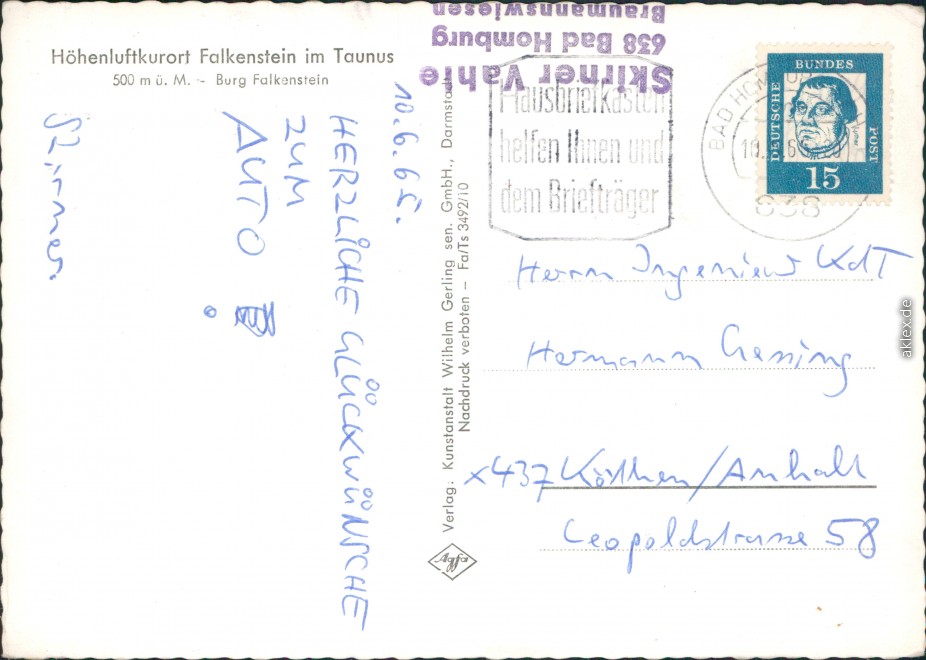 Höhenluftkurort Falkenstein im Taunus
500 m ü. M. - Burg Falkenstein
10.6.65.
HERZLICHE GLÜCKWÜNSCHE
ZUM
AUTO!
Skirner
Verlag: Kunstanstalt Wilhelm Gerling sen. GmbH., Darmstadt
Nachdruck verboten - Fa/Ts 3492/10
Agfa
Skirner Vahle
638 Bad Homburg
Braumannswiesen
Hausbriefkästen
helfen Ihnen und
dem Briefträger
BAD HOMBURG
638
BUNDES
DEUTSCHE
POST
15
Herrn Ingenieur KdT
Hermann Gessing
x437 Köthen/Anhalt
Leopoldstrasse 58
aklex.de